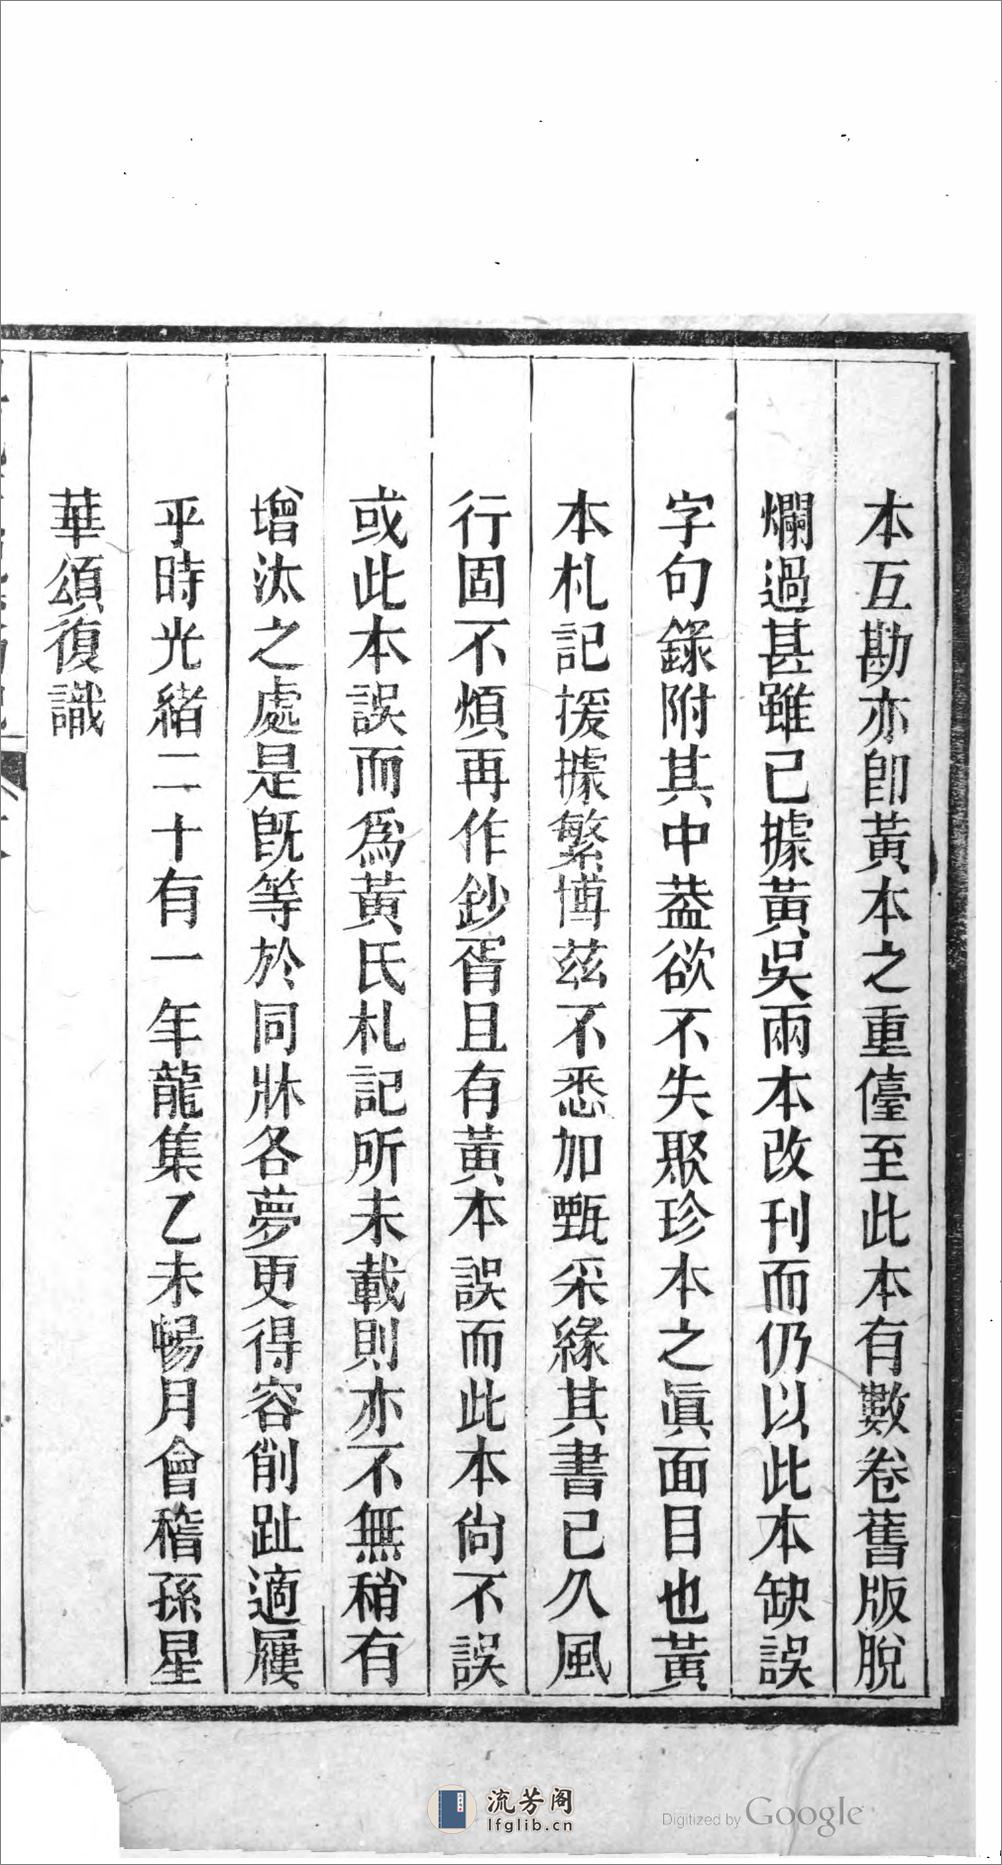 本互勘亦卽黃本之重儓至此本有數卷舊版脫
爛過甚雖已據黃吳兩本改刊而仍以此本缺誤
字句錄附其中葢欲不失聚珍本之眞面目也黃
本札記援據繁博茲不悉加甄采緣其書已久風
行固不煩再作鈔胥且有黃本誤而此本尙不誤
或此本誤而爲黃氏札記所未載則亦不無稍有
增汰之處是旣等於同牀各夢更得容削趾適屨
乎時光緒二十有一年龍集乙未暢月會稽孫星
華頌復識
流芳阁
lfglib.cn
Digitized by Google